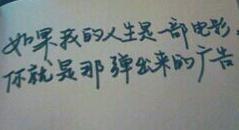 如果我的人生是一部电影,
你就是那弹出来的广告